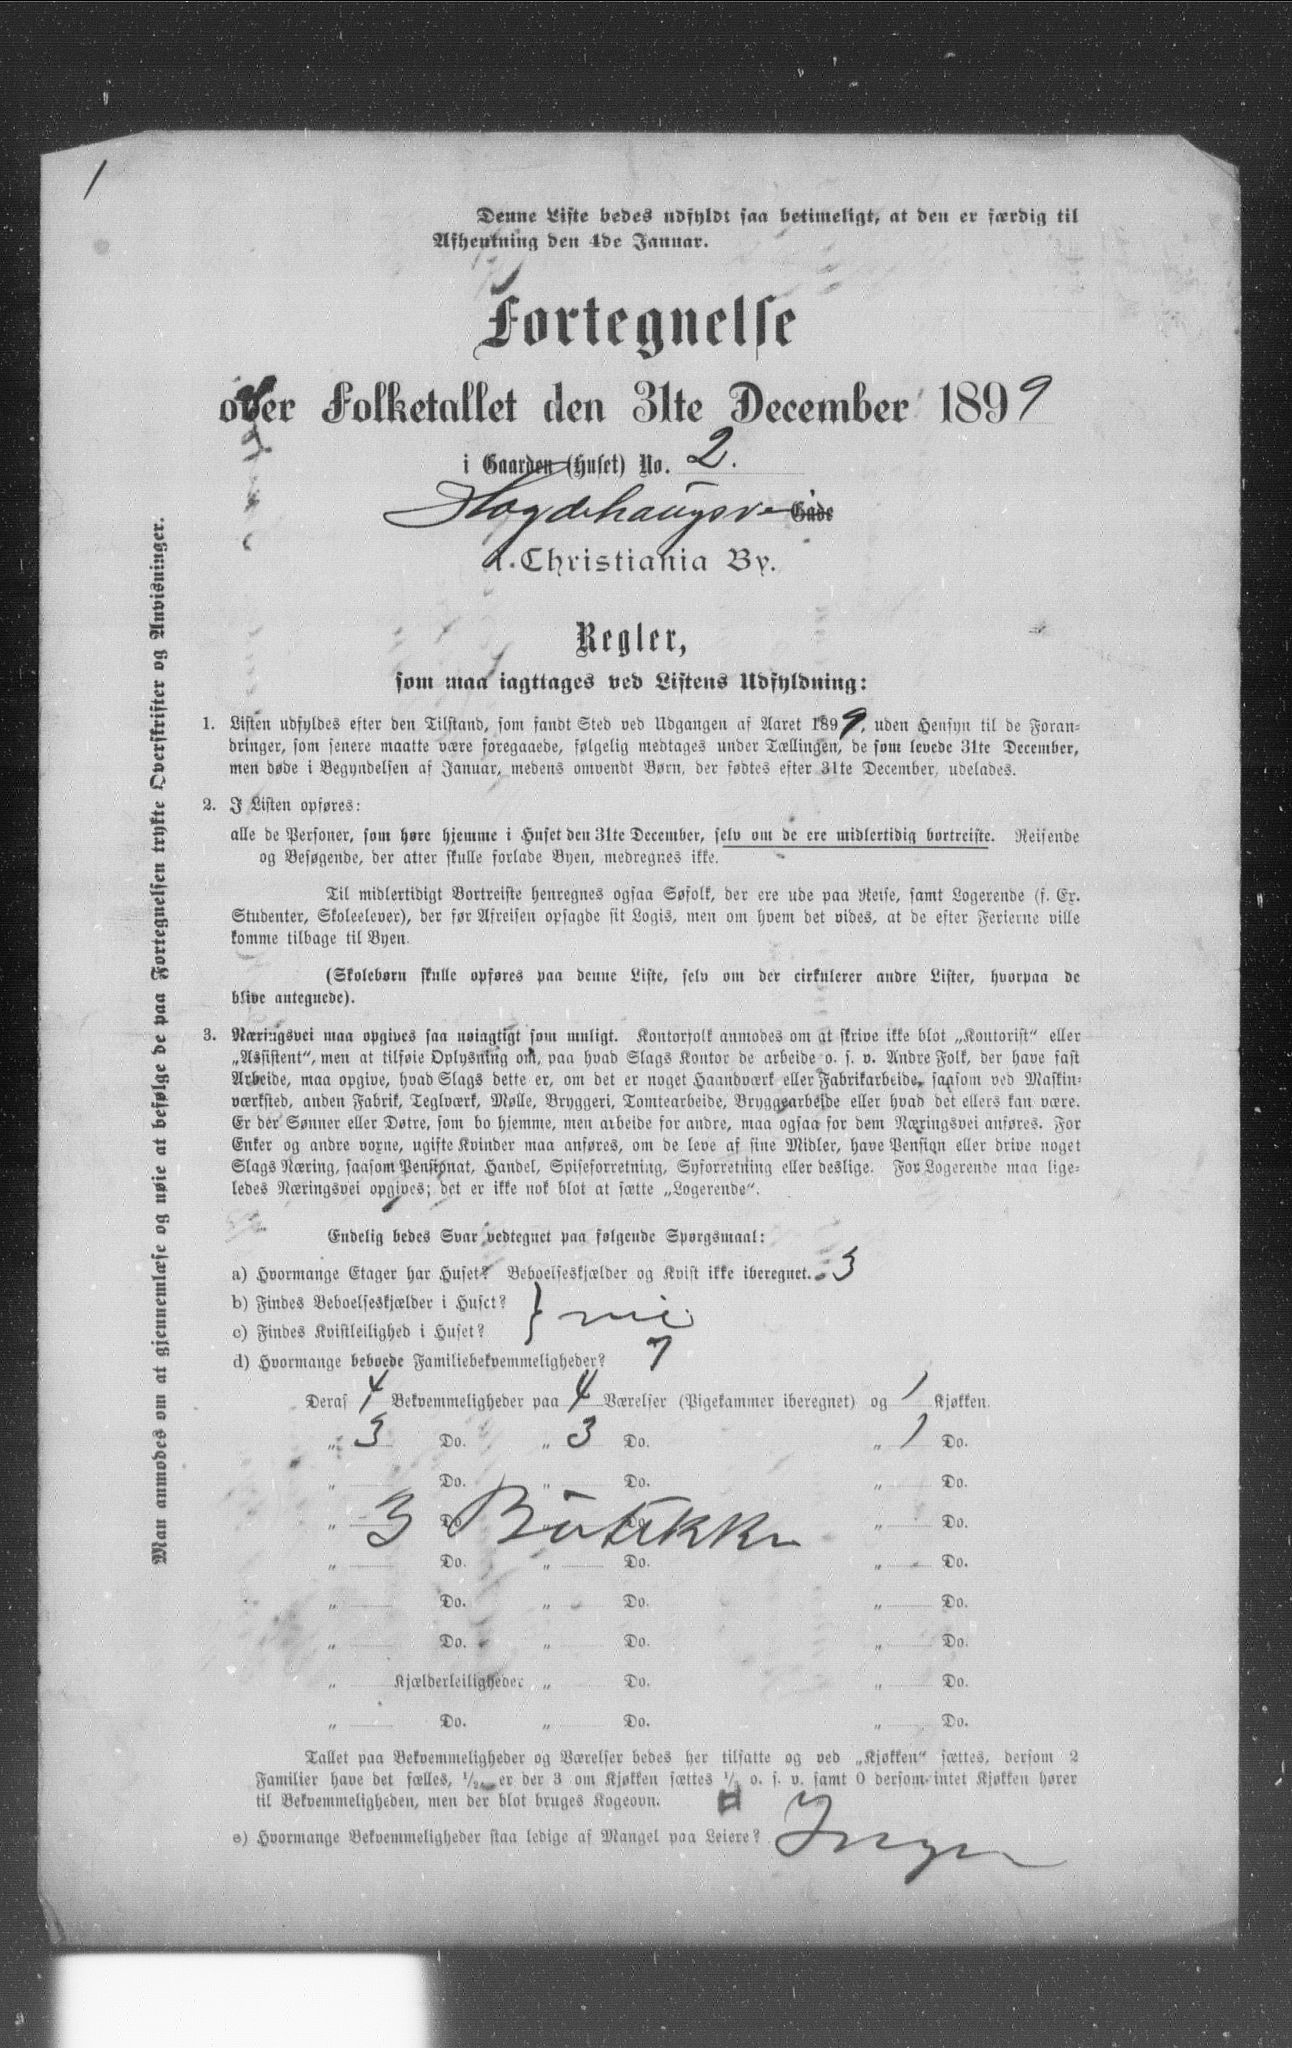 1
Denne Liste bedes udfyldt saa betimeligt, at den er færdig til
Afhentning den 4de Januar.
Fortegnelse
over Folketallet den 31te December 1899
i Gaarden (Huset) No. 2.
Hægdehaugsv. Gade
i Christiania By.
Regler,
som maa iagttages ved Listens Udfyldning:
1. Listen udfyldes efter den Tilstand, som fandt Sted ved Udgangen af Aaret 1899, uden Hensyn til de Foran-
dringer, som senere maatte være foregaaede, følgelig medtages under Tællingen, de som levede 31te December,
men døde i Begyndelsen af Januar, medens omvendt Børn, der fødtes efter 31te December, udelades.
2. I Listen opføres:
alle de Personer, som høre hjemme i Huset den 31te December, selv om de ere midlertidig bortreiste. Reisende
og Besøgende, der atter skulle forlade Byen, medregnes ikke.
Til midlertidigt Bortreiste henregnes ogsaa Søfolk, der ere ude paa Reise, samt Logerende (f. Ex.
Studenter, Skoleelever), der før Afreisen opsagde sit Logis, men om hvem det vides, at de efter Ferierne ville
komme tilbage til Byen.
(Skolebørn skulle opføres paa denne Liste, selv om der cirkulerer andre Lister, hvorpaa de
blive antegnede).
3. Næringsvei maa opgives saa nøiagtigt som muligt. Kontorfolk anmodes om at skrive ikke blot „Kontorist“ eller
„Assistent“, men at tilføie Oplysning om, paa hvad Slags Kontor de arbeide o. s. v. Andre Folk, der have fast
Arbeide, maa opgive, hvad Slags dette er, om det er noget Haandværk eller Fabrikarbeide, saasom ved Maskin-
værksted, anden Fabrik, Teglværk, Mølle, Bryggeri, Tomtearbeide, Bryggearbeide eller hvad det ellers kan være.
Er der Sønner eller Døtre, som bo hjemme, men arbeide for andre, maa ogsaa for dem Næringsvei anføres. For
Enker og andre voxne, ugifte Kvinder maa anføres, om de leve af sine Midler, have Pension eller drive noget
Slags Næring, saasom Pensionat, Handel, Spiseforretning, Syforretning eller deslige. For Logerende maa lige-
ledes Næringsvei opgives; det er ikke nok blot at sætte „Logerende“.
Endelig bedes Svar vedtegnet paa følgende Spørgsmaal:
a) Hvormange Etager har Huset? Beboelseskjælder og Kvist ikke iberegnet. 3
b) Findes Beboelseskjælder i Huset?
c) Findes Kvistleilighed i Huset? } nei
d) Hvormange beboede Familiebekvemmeligheder? 7
Deraf 4 Bekvemmeligheder paa 4 Værelser (Pigekammer iberegnet) og 1 Kjøkken.
„ 3 Do. „ 3 Do. „ 1 Do.
„ Do. „ Do. „ Do.
„ 3 Do. Butikker Do. „ Do.
„ Do. „ Do. „ Do.
„ Do. „ Do. „ Do.
„ Do. „ Do. „ Do.
„ Kjælderleiligheder „ Do. „ Do.
„ Do. „ Do. „ Do.
Tallet paa Bekvemmeligheder og Værelser bedes her tilsatte og ved „Kjøkken“ sættes, dersom 2
Familier have det fælles, 1/2, er der 3 om Kjøkken sættes 1/3 o. s. v. samt 0 dersom intet Kjøkken hører
til Bekvemmeligheden, men der blot bruges Kogeovn.
e) Hvormange Bekvemmeligheder staa ledige af Mangel paa Leiere? Ingen
Man anmodes om at gjennemlæse og nøie at befølge de paa Fortegnelsen trykte Overskrifter og Anvisninger.